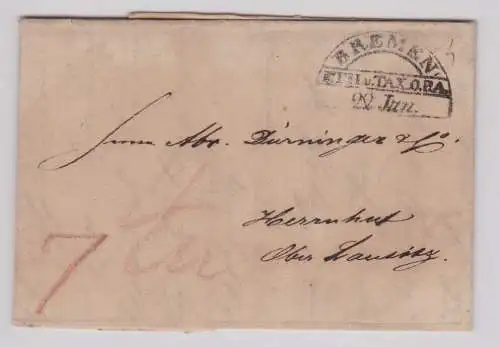 BREMEN
F.TH.u.TAX.O.P.A.
22 Jan.
Herrn Abr. Dürninger & Co.
Herrnhut
Ober Lausitz.
7